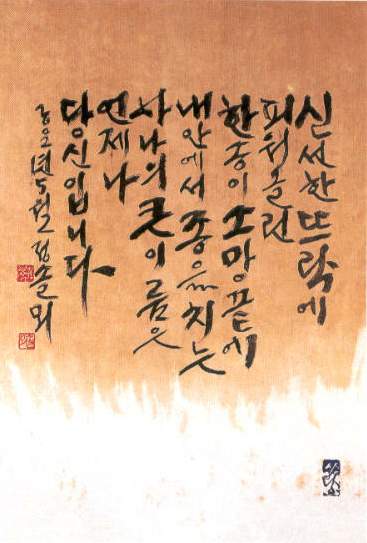 신선한 뜨락에
피워올린
한송이 소망끝에
내안에서 종을치는
하나의 큰이름은
언제나
당신입니다
솔뫼